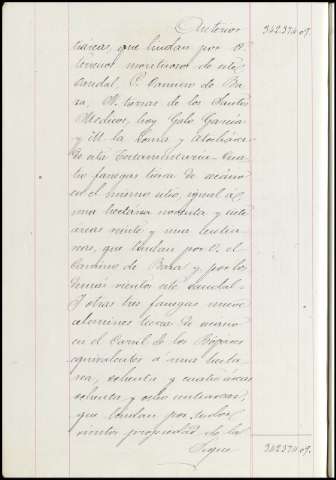 Anterior 342374.09.
tiáreas, que lindan por O.
terreno montuoso de este
caudal, P. Camino de Ba
za, M. tierras de los Santos
Médicos, hoy Galo García
y N. la Loma y
de esta Testamentaria. Cua
tro fanegas tierra de secano
en el mismo sitio, igual á
una hectárea noventa y siete
áreas veinte y una centiá
reas, que lindan por O. el
Camino de Baza y por los
demás vientos este caudal.
Y otras tres fanegas nueve
celemines tierra de secano
en el Carril de los
equivalentes á una hectá
rea, ochenta y cuatro áreas
ochenta y ocho centiáreas,
que lindan por todos
vientos propiedad de la
Sigue 342374.09.